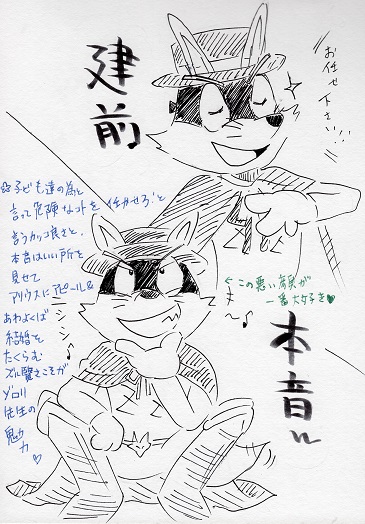 建前
お任せ下さい!!
☆子ども達の為と
言って危険なコトを任せろ!と
言うカッコ良さと、
本音はいい所を
見せて
アリウスにアピール&
あわよくば
結婚を
たくらむ
ズル賢いところが
ゾロリ
先生の
魅力♡
←この悪い顔が
一番大好き♥
ニシシシ♪
本音